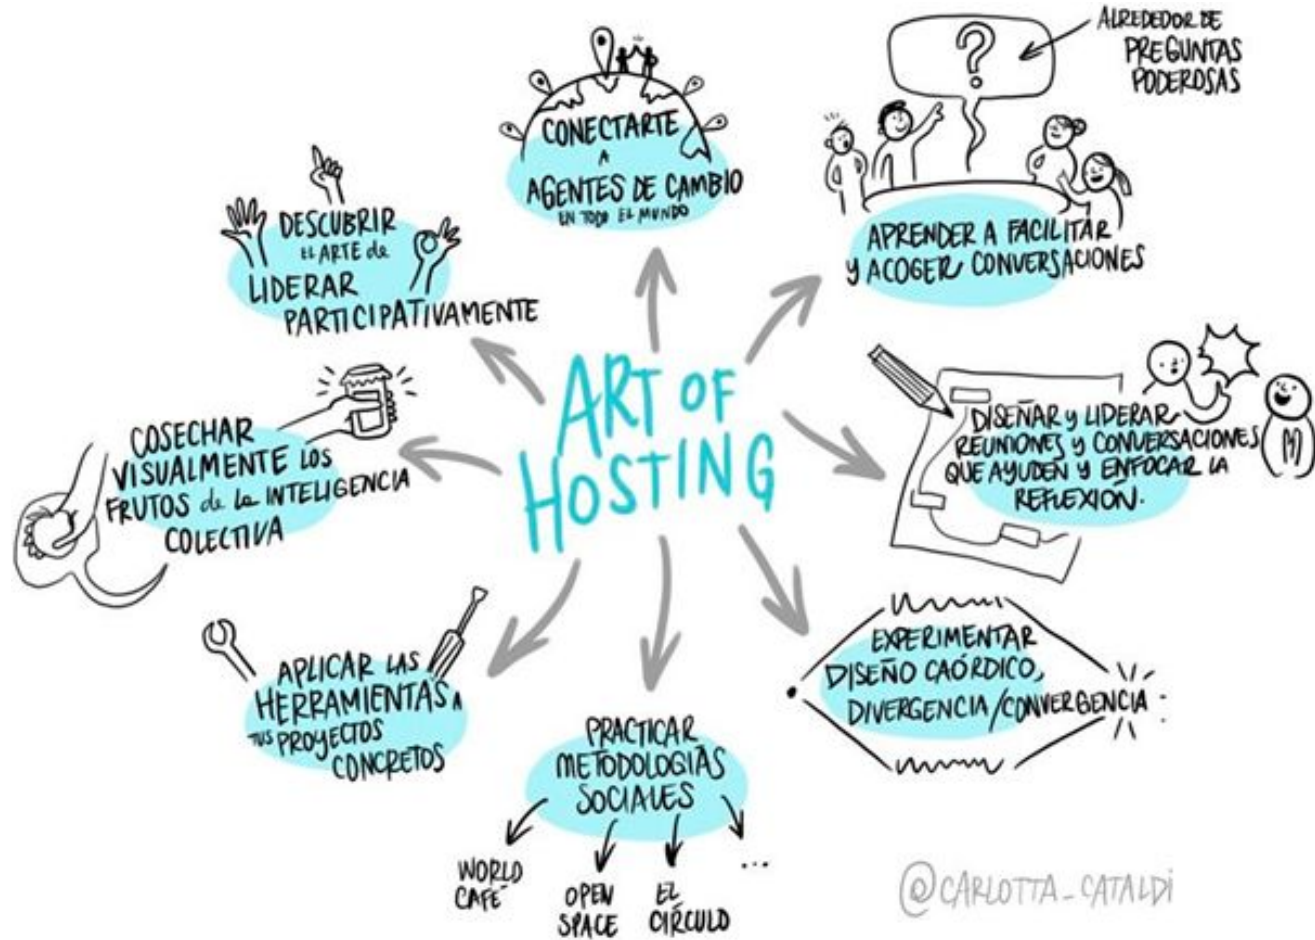 ART OF
HOSTING
CONECTARTE
A
AGENTES DE CAMBIO
EN TODO EL MUNDO
ALREDEDOR DE
PREGUNTAS
PODEROSAS
?
APRENDER A FACILITAR
Y ACOGER CONVERSACIONES
DISEÑAR y LIDERAR
REUNIONES y CONVERSACIONES
QUE AYUDEN Y ENFOCAR LA
REFLEXIÓN.
EXPERIMENTAR
DISEÑO CAÓRDICO,
DIVERGENCIA/CONVERGENCIA
PRACTICAR
METODOLOGIAS
SOCIALES
WORLD
CAFÉ
OPEN
SPACE
EL
CÍRCULO
...
APLICAR LAS
HERRAMIENTAS A
TUS PROYECTOS
CONCRETOS
COSECHAR
VISUALMENTE LOS
FRUTOS de la INTELIGENCIA
COLECTIVA
DESCUBRIR
EL ARTE de
LIDERAR
PARTICIPATIVAMENTE
@CARLOTTA_CATALDI